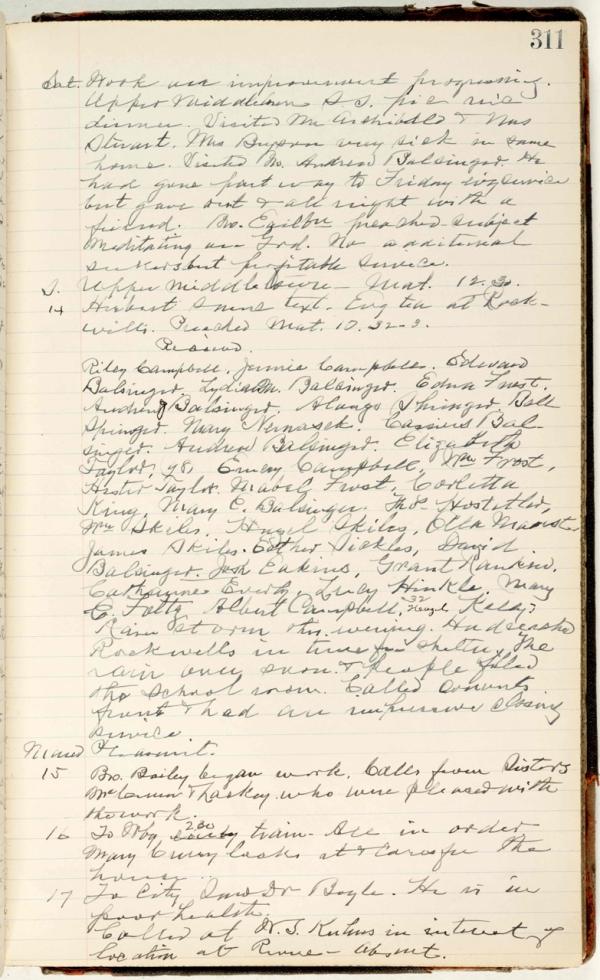 311
Sat. Work and improvement progressing.
Upper Middletown S S. pic nic
dinner. Visited Mr Archibald & Mrs
Stewart. Mrs Bryson very sick in same
home. Visited Bro. Andrew Balsinger. He
had gone part way to Friday evg service
but gave out & all night with a
friend. Bro. Egilbu preached subject
Meditating on God. No additional
seekers but profitable service.
S. Upper Middletown - Mat. 12.30.
14 Herbert same text. Evg tea at Rock-
wills. Preached Mat. 10.32-3.
Received
Riley Campbell, Jennie Campbell. Edward
Balsinger, Lydia M. Balsinger. Edna Frost.
Andrew J Balsinger. Alonzo Springer. Bell
Springer. Mary Nemasek. Cassius Bal-
singer. Andrew Balsinger. Elizabeth
Taylor, Emery Campbell, Wm Frost,
Hester Taylor. Mabel Frost, Corletta
King, Mary E. Balsinger. Tho's Hostetler,
Wm Skiles, Hazel Skiles, Olla
James Skiles. Esther Sickles, David
Balsinger. Josh Eakins, Grant Rankin.
Catharine Everly, Lucy Hinkle, Mary
E. Fatty Albert Campbell, 32 Kelly.
Rain storm this evening. Had reached
Rockwells in time for shelter. The
rain over soon & People filled
the school room. Called converts
front & had an impressive closing
service
Pleasant.
15 Bro. Bailey began work. Calls from Sisters
& Laskey who were pleased with
the work.
16 To Wby 2.30 train. All in order
Mary Emery looks at & cares for the
house.
17 To City Saw Dr Boyle. He is in
poor health.
Called at W. S. Kuhns in interest of
location at - absent.